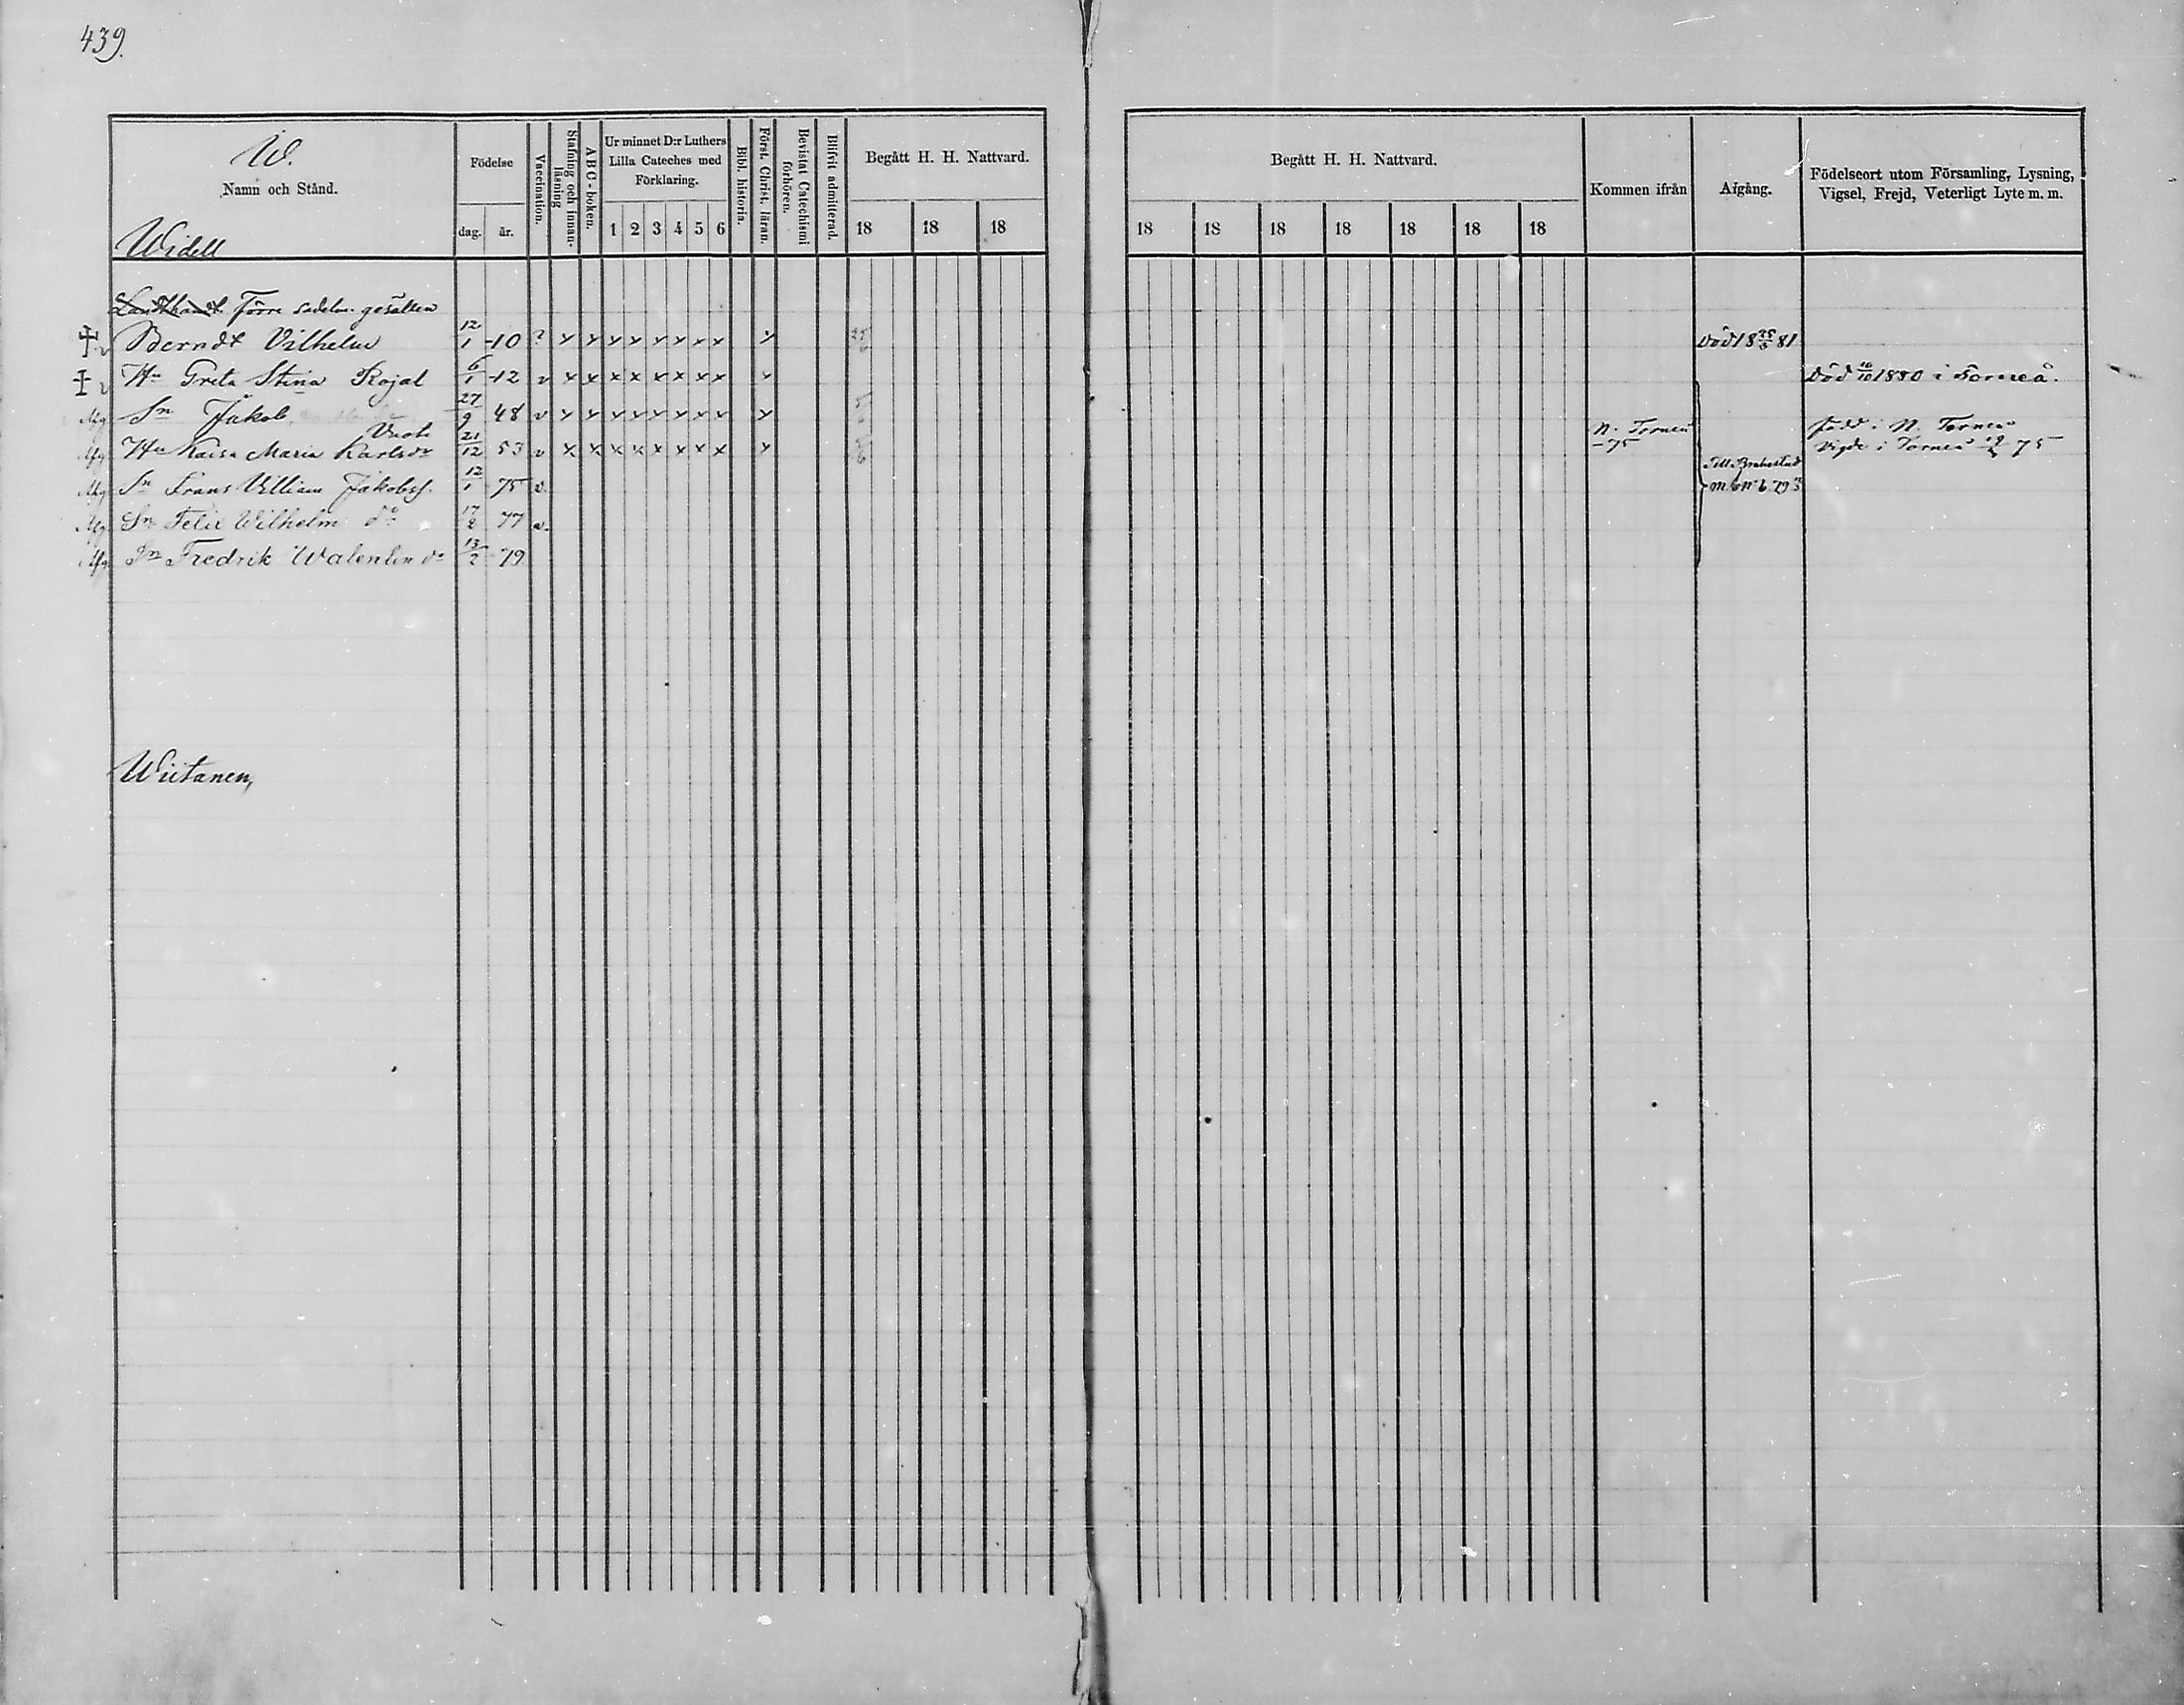 439.
W.
Namn och Stånd.
Födelse
dag. år.
Vaccination.
Stafning och innan-läsning
ABC-boken.
Ur minnet D:r Luthers Lilla Cateches med Förklaring.
1 2 3 4 5 6
Bibl. historia.
Först. Christ. läran.
Bevistat Catechismi förhören.
Blifvit admitterad.
Begått H. H. Nattvard.
18 18 18
Begått H. H. Nattvard.
18 18 18 18 18 18 18
Kommen ifrån
Afgång.
Födelseort utom Församling, Lysning, Vigsel, Frejd, Veterligt Lyte m. m.
Widell
Förre sadelm. gesällen
Berndt Vilhelm 12/1 -10 ? x x x x x x x x x Död 18 25/5 81
Hu Greta Stina Rojal 6/1 -12 v x x x x x x x x x Död 16/10 1880 i Torneå.
Sn Jakob 27/9 48 v x x x x x x x x x
Hu Kaisa Maria Karlsdr 21/12 53 v x x x x x x x x x N. Torneå -75 född i N. Torneå Vigde i Torneå 75
Sn Frans Villiam Jakobss. 12/1 75 v. Till Brahestad m. b. N:o 6 79
Sn Felix Wilhelm do 17/2 77 v.
Sn Fredrik Walentin do 13/2 79
Wiitanen,